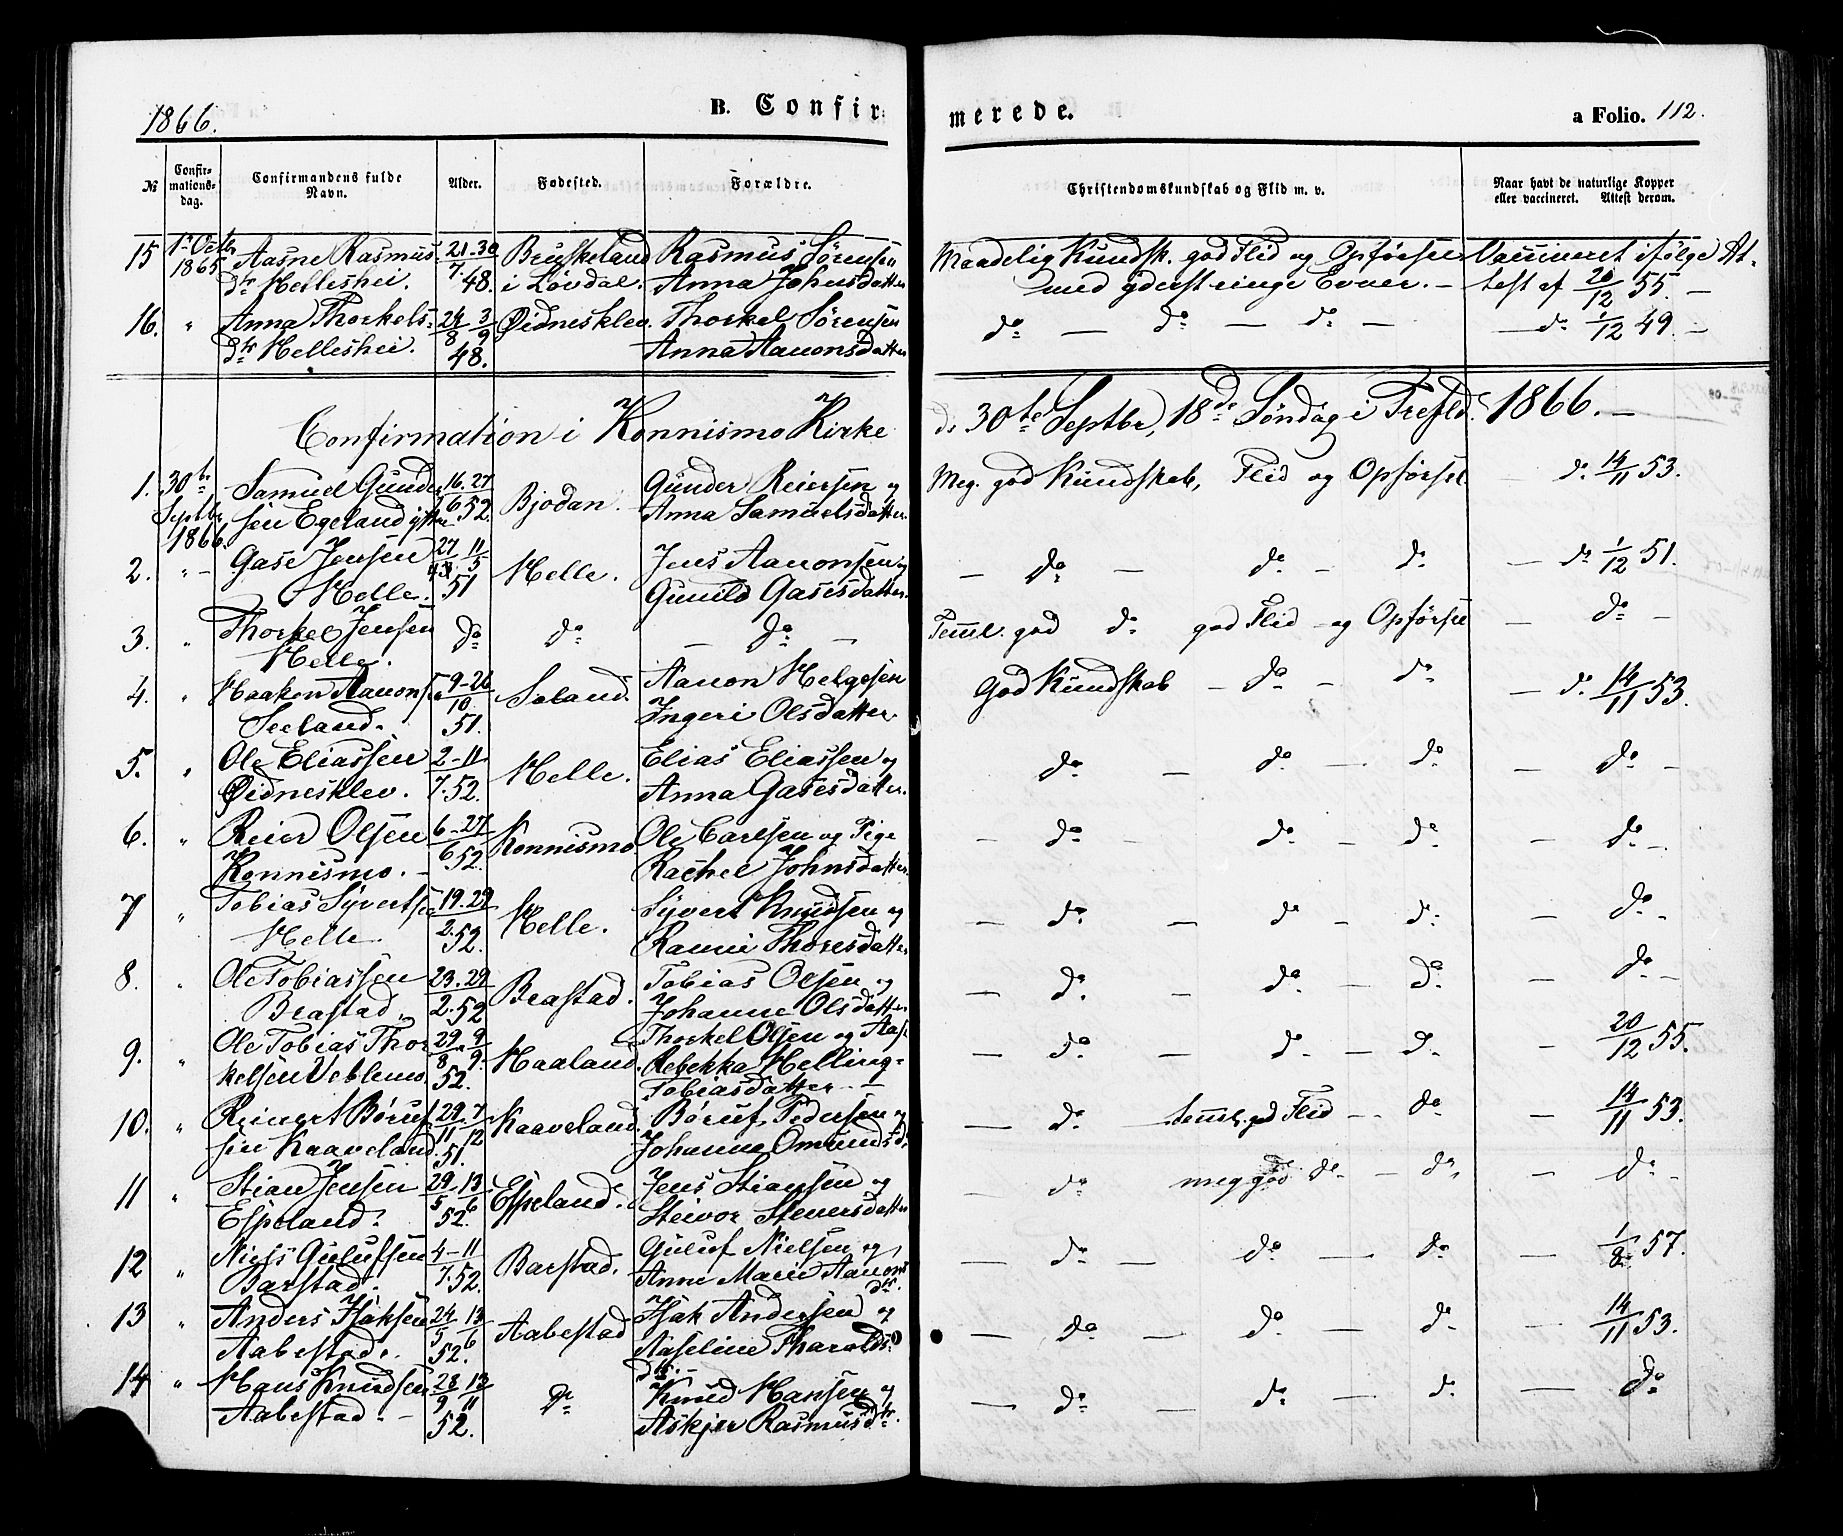 1866.
B. Confir-
merede.
a Folio. 112.
№
Confir-
mations-
dag.
Confirmandens fulde
Navn.
Alder.
Fødested.
Forældre.
Christendomskundskab og Flid m. v.
Naar havt de naturlige Kopper
eller vaccineret. Attest derom.
15 1ste Octbr Aasne Rasmus 21-30 Bruskeland Rasmus Sørensen Maadelig Kundsk. god Flid og Opførsel Vaccineret ifølge At-
1865 dtr Helleshei. 7. 48. i Løvdal. Anna Johnsdatter med yderst ringe Evner. - test af 20/12 55. -
16. " Anna Thorkels- 24/8 3/9 Øidnesklev. Thorkel Sørensen do - do - do - - do 1/12 49. -
dtr Helleshei. 48. Anna Aanonsdatter
Confirmation i Konnismo Kirke d. 30te Septbr, 18de Søndag i Trefld. 1866. -
1. 30te Samuel Gunder 16-27 Bjodan. Günder Reiersen og Meg. god Kundskab, Flid og Opførsel - do 14/11 53.
Septbr sen Egeland 6 52. Anna Samuelsdatter.
1866.
2. " - Gase Jensen 27 11/5 Helle. Jens Aanonsen og - do - do - do - do 1/12 51.
Helle. 51 Gunild Gasesdatter.
3. " Thorkel Jensen do do - do - Teml. god do god Flid og Opførsel - do -
Helle.
4. " Haakon Aanons 9-26 Søland. Aanon Helgesen God Kundskab - do - do - do 14/11 53.
Seeland. 10. 51. Ingeri Olsdatter.
5. " Ole Eliassen 2-11 Helle. Elias Eliassen og do - do - do - do -
Øidnesklev. 7. 52. Anna Gasesdatter.
6. " Reier Olsen 6-27 Konnismo Ole Carlsen og Pige - do - do - do - do -
Konnismo. - 6 52. Rachel Johnsdatter
7 " Tobias Syvertsen 19-29 Helle. Syvert Knudsen og - do - do - do - do -
Helle. 2. 52. Ranni Thoresdatter
8. " Ole Tobiassen 23-29 Brastad. Tobias Olsen og - do - do - do - do -
Brastad. 2. 52 Johanne Olsdatter
9. " Ole Tobias Thor 29/8 9/9 Haaland. Thorkel Olsen og Aase - do - do - do - 20/12 55.
kelsen Veblemo. 52. Rebekka Helling-
Tobiasdatter. -
10. " Reinert Børuf 29/11 7/12 Kaaveland. Børuf Pedersen og - do - teml. god Flid - do - 14/11 53.
sen Kaaveland. 51. Johanna Omunds d.
11 " Stian Jensen 29/5 13/6 Espeland. Jens Stiansen og - do meg god do - do - do -
Espeland. 52. Steivor Stenersdatter
12 " Niels Gulufsen 4-11 Barstad. Guluf Nielsen og - do - do - do - 1/8 57.
Barstad. 7. 52. Anne Marie Aanons
dtr.
13 " Anders Isaksen 24/5 13/6 Aabestad Isak Andersen og - do - do - do - 14/11 53.
Aabestad. 52. Aaseline Tharalds
dtr.
14 " Hans Knudsen 28/9 13/11 do Knud Hansen og - do - do - do - do
Aabestad. - 52. Askjer Rasmusdtr.